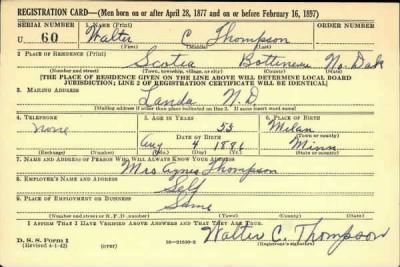 REGISTRATION CARD—(Men born on or after April 28, 1877 and on or before February 16, 1897)
SERIAL NUMBER
U 60
1. NAME (Print)
Walter C Thompson
(First) (Middle) (Last)
2. PLACE OF RESIDENCE (Print)
Scotia Bottineau No. Dak
(Number and street) (Town, township, village, or city) (County) (State)
[THE PLACE OF RESIDENCE GIVEN ON THE LINE ABOVE WILL DETERMINE LOCAL BOARD
JURISDICTION; LINE 2 OF REGISTRATION CERTIFICATE WILL BE IDENTICAL]
3. MAILING ADDRESS
Landa N.D.
[Mailing address if other than place indicated on line 2. If same insert word same]
4. TELEPHONE
none
(Exchange) (Number)
5. AGE IN YEARS
55
DATE OF BIRTH
Aug 4 1886
(Mo.) (Day) (Yr.)
6. PLACE OF BIRTH
Milan
(Town or county)
Minn
(State or country)
7. NAME AND ADDRESS OF PERSON WHO WILL ALWAYS KNOW YOUR ADDRESS
Mrs Agnes Thompson
8. EMPLOYER'S NAME AND ADDRESS
Self
9. PLACE OF EMPLOYMENT OR BUSINESS
Same
(Number and street or R. F. D. number) (Town) (County) (State)
I AFFIRM THAT I HAVE VERIFIED ABOVE ANSWERS AND THAT THEY ARE TRUE.
D. S. S. Form 1
(Revised 4-1-42) (over)
Walter C. Thompson
(Registrant's signature)